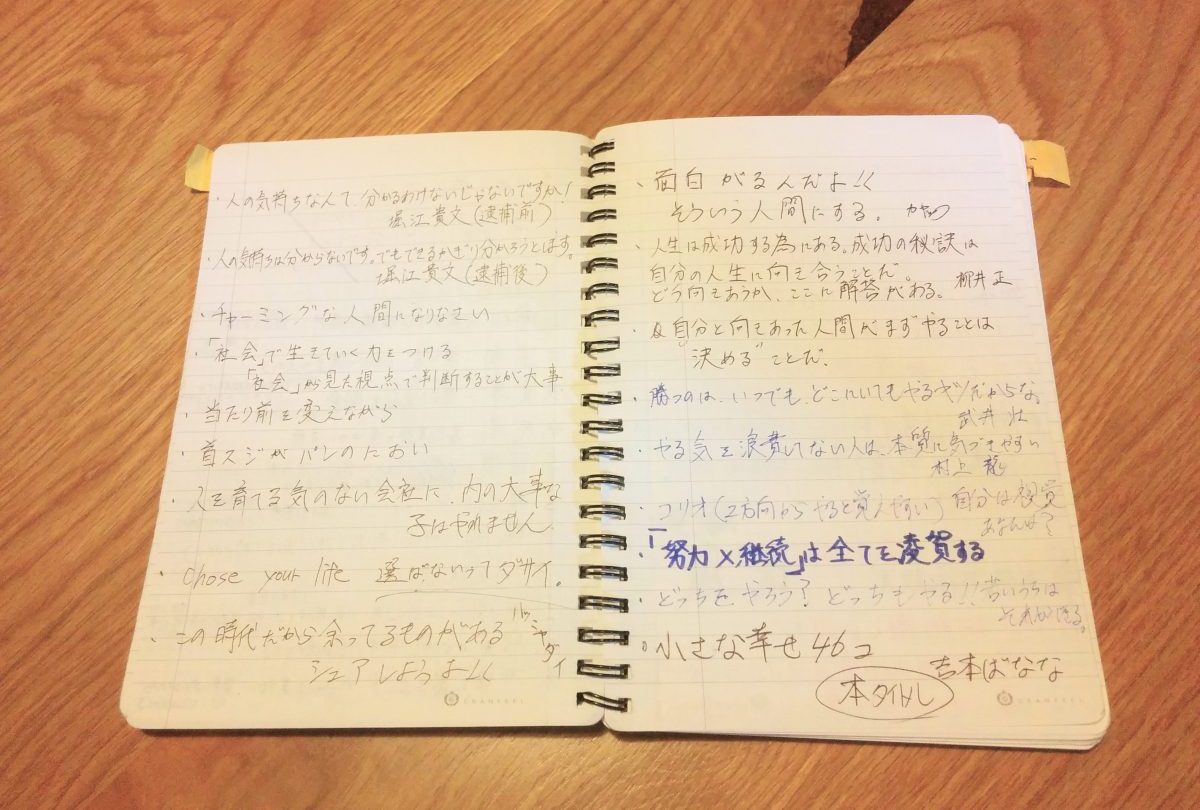 ・人の気持ちなんて、分かるわけないじゃないですか!
堀江貴文(逮捕前)
・人の気持ちは分からないです。でもできるかぎり分かろうとはす。
堀江貴文(逮捕後)
・チャーミングな人間になりなさい
・「社会」で生きていく力をつける
「社会」から見た視点で判断することが大事
・当たり前を変えながら
・首スジがパンのにおい
・人を育てる気のない会社に、内の大事な
子はやれません。
・chose your life 選ばないってダサイ。
・この時代だから余ってるものがある
シェアしようよ!!
ハッシャダイ
・面白がるんだよ!!
そういう人間にする。
・人生は成功する為にある。成功の秘訣は
自分の人生に向き合うことだ。
どう向きあうか、ここに解答がある。 柳井正
・自分と向きあった人間がまずやることは
"決める"ことだ。
・勝つのは、いつでも、どこにいてもやるヤツだからな。
武井 壮
・やる気を浪費してない人は、本質に気づきやすい
村上 龍
・コリオ(2方向からやると覚えやすい) 自分は視覚
あなたは?
・「努力×継続」は全てを凌駕する
・どっちをやろう? どっちもやる!! 若いうちは
それができる。
・小さな幸せ46コ
吉本ばなな
本タイトル
GRANFEEL